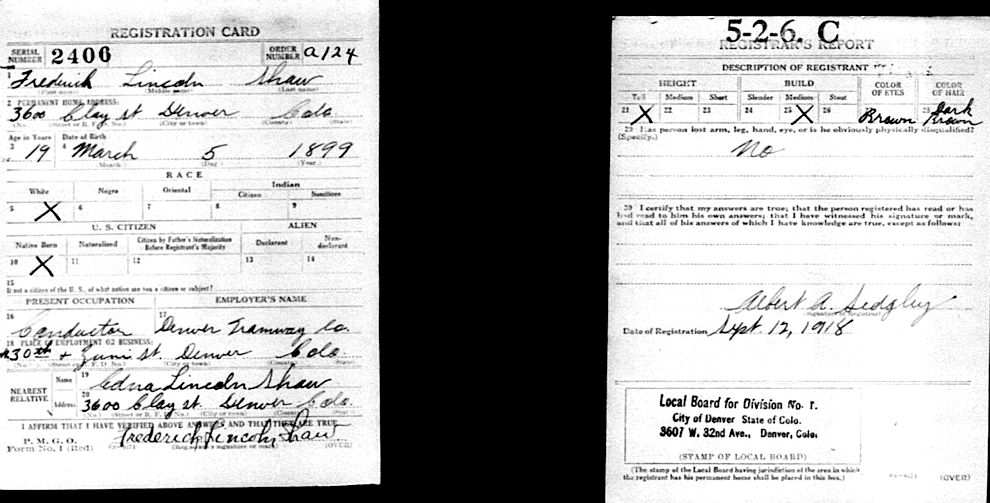 REGISTRATION CARD
SERIAL NUMBER 2406 ORDER NUMBER a124
1 Frederick Lincoln Shaw
(First name) (Middle name) (Last name)
2 PERMANENT HOME ADDRESS:
3600 Clay st Denver Colo.
(No.) (Street or R. F. D. No.) (City or town) (County) (State)
Age in Years Date of Birth
3 19 4 March 5 1899
(Month) (Day) (Year)
RACE
White Negro Oriental Indian
Citizen Noncitizen
5 X 6 7 8 9
U. S. CITIZEN ALIEN
Native Born Naturalized Citizen by Father's Naturalization Before Registrant's Majority Declarant Non-declarant
10 X 11 12 13 14
15
If not a citizen of the U. S., of what nation are you a citizen or subject?
PRESENT OCCUPATION EMPLOYER'S NAME
16 Conductor 17 Denver Tramway Co.
18 PLACE OF EMPLOYMENT OR BUSINESS:
30th + Zuni st. Denver Colo.
(No.) (Street or R. F. D. No.) (City or town) (County) (State)
NEAREST RELATIVE Name 19 Edna Lincoln Shaw
Address 20 3600 Clay st. Denver Colo.
(No.) (Street or R. F. D. No.) (City or town) (County) (State)
I AFFIRM THAT I HAVE VERIFIED ABOVE ANSWERS AND THAT THEY ARE TRUE
P. M. G. O.
Form No. 1 (Red) Frederick Lincoln Shaw
(Registrant's signature or mark) (OVER)
5-2-6. C
REGISTRAR'S REPORT
DESCRIPTION OF REGISTRANT
HEIGHT BUILD COLOR OF EYES COLOR OF HAIR
Tall Medium Short Slender Medium Stout
21 X 22 23 24 25 X 26 27 Brown 28 Dark Brown
29 Has person lost arm, leg, hand, eye, or is he obviously physically disqualified?
(Specify.)
No
30 I certify that my answers are true; that the person registered has read or has
had read to him his own answers; that I have witnessed his signature or mark,
and that all of his answers of which I have knowledge are true, except as follows:
Albert A. Sedgley
(Signature of Registrar)
Date of Registration Sept. 12, 1918
Local Board for Division No. 1.
City of Denver State of Colo.
3607 W. 32nd Ave., Denver, Colo.
(STAMP OF LOCAL BOARD)
(The stamp of the Local Board having jurisdiction of the area in which
the registrant has his permanent home shall be placed in this box.)
(OVER)